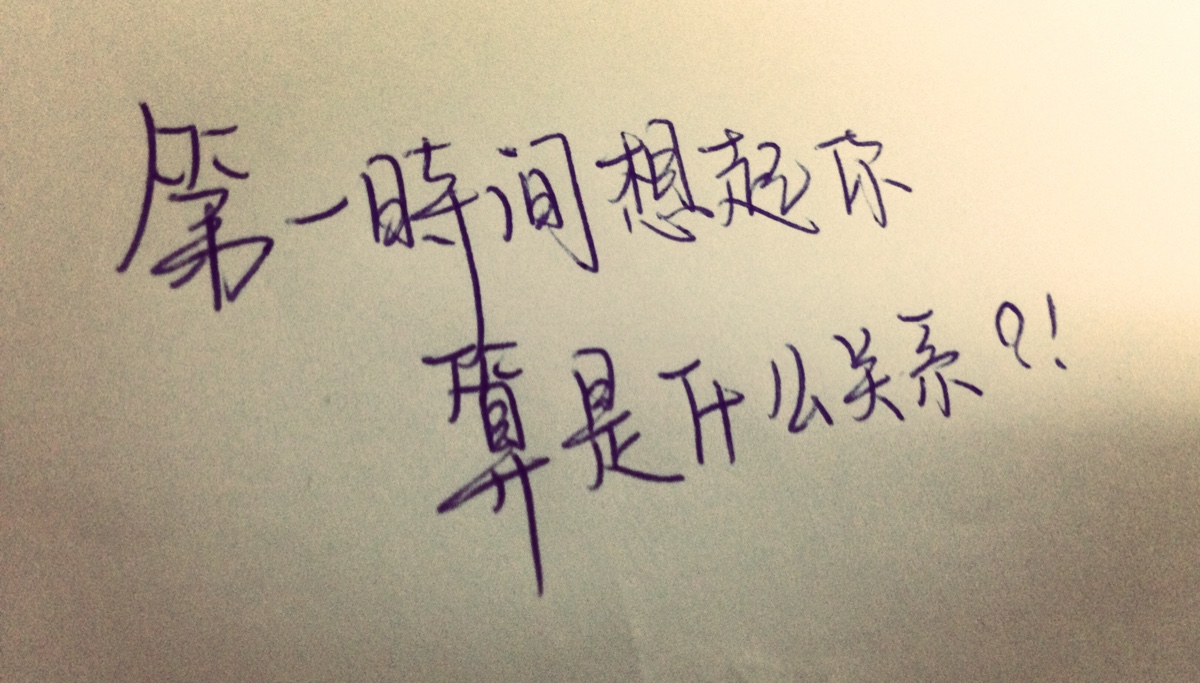 第一時间想起你
算是什么关系?!